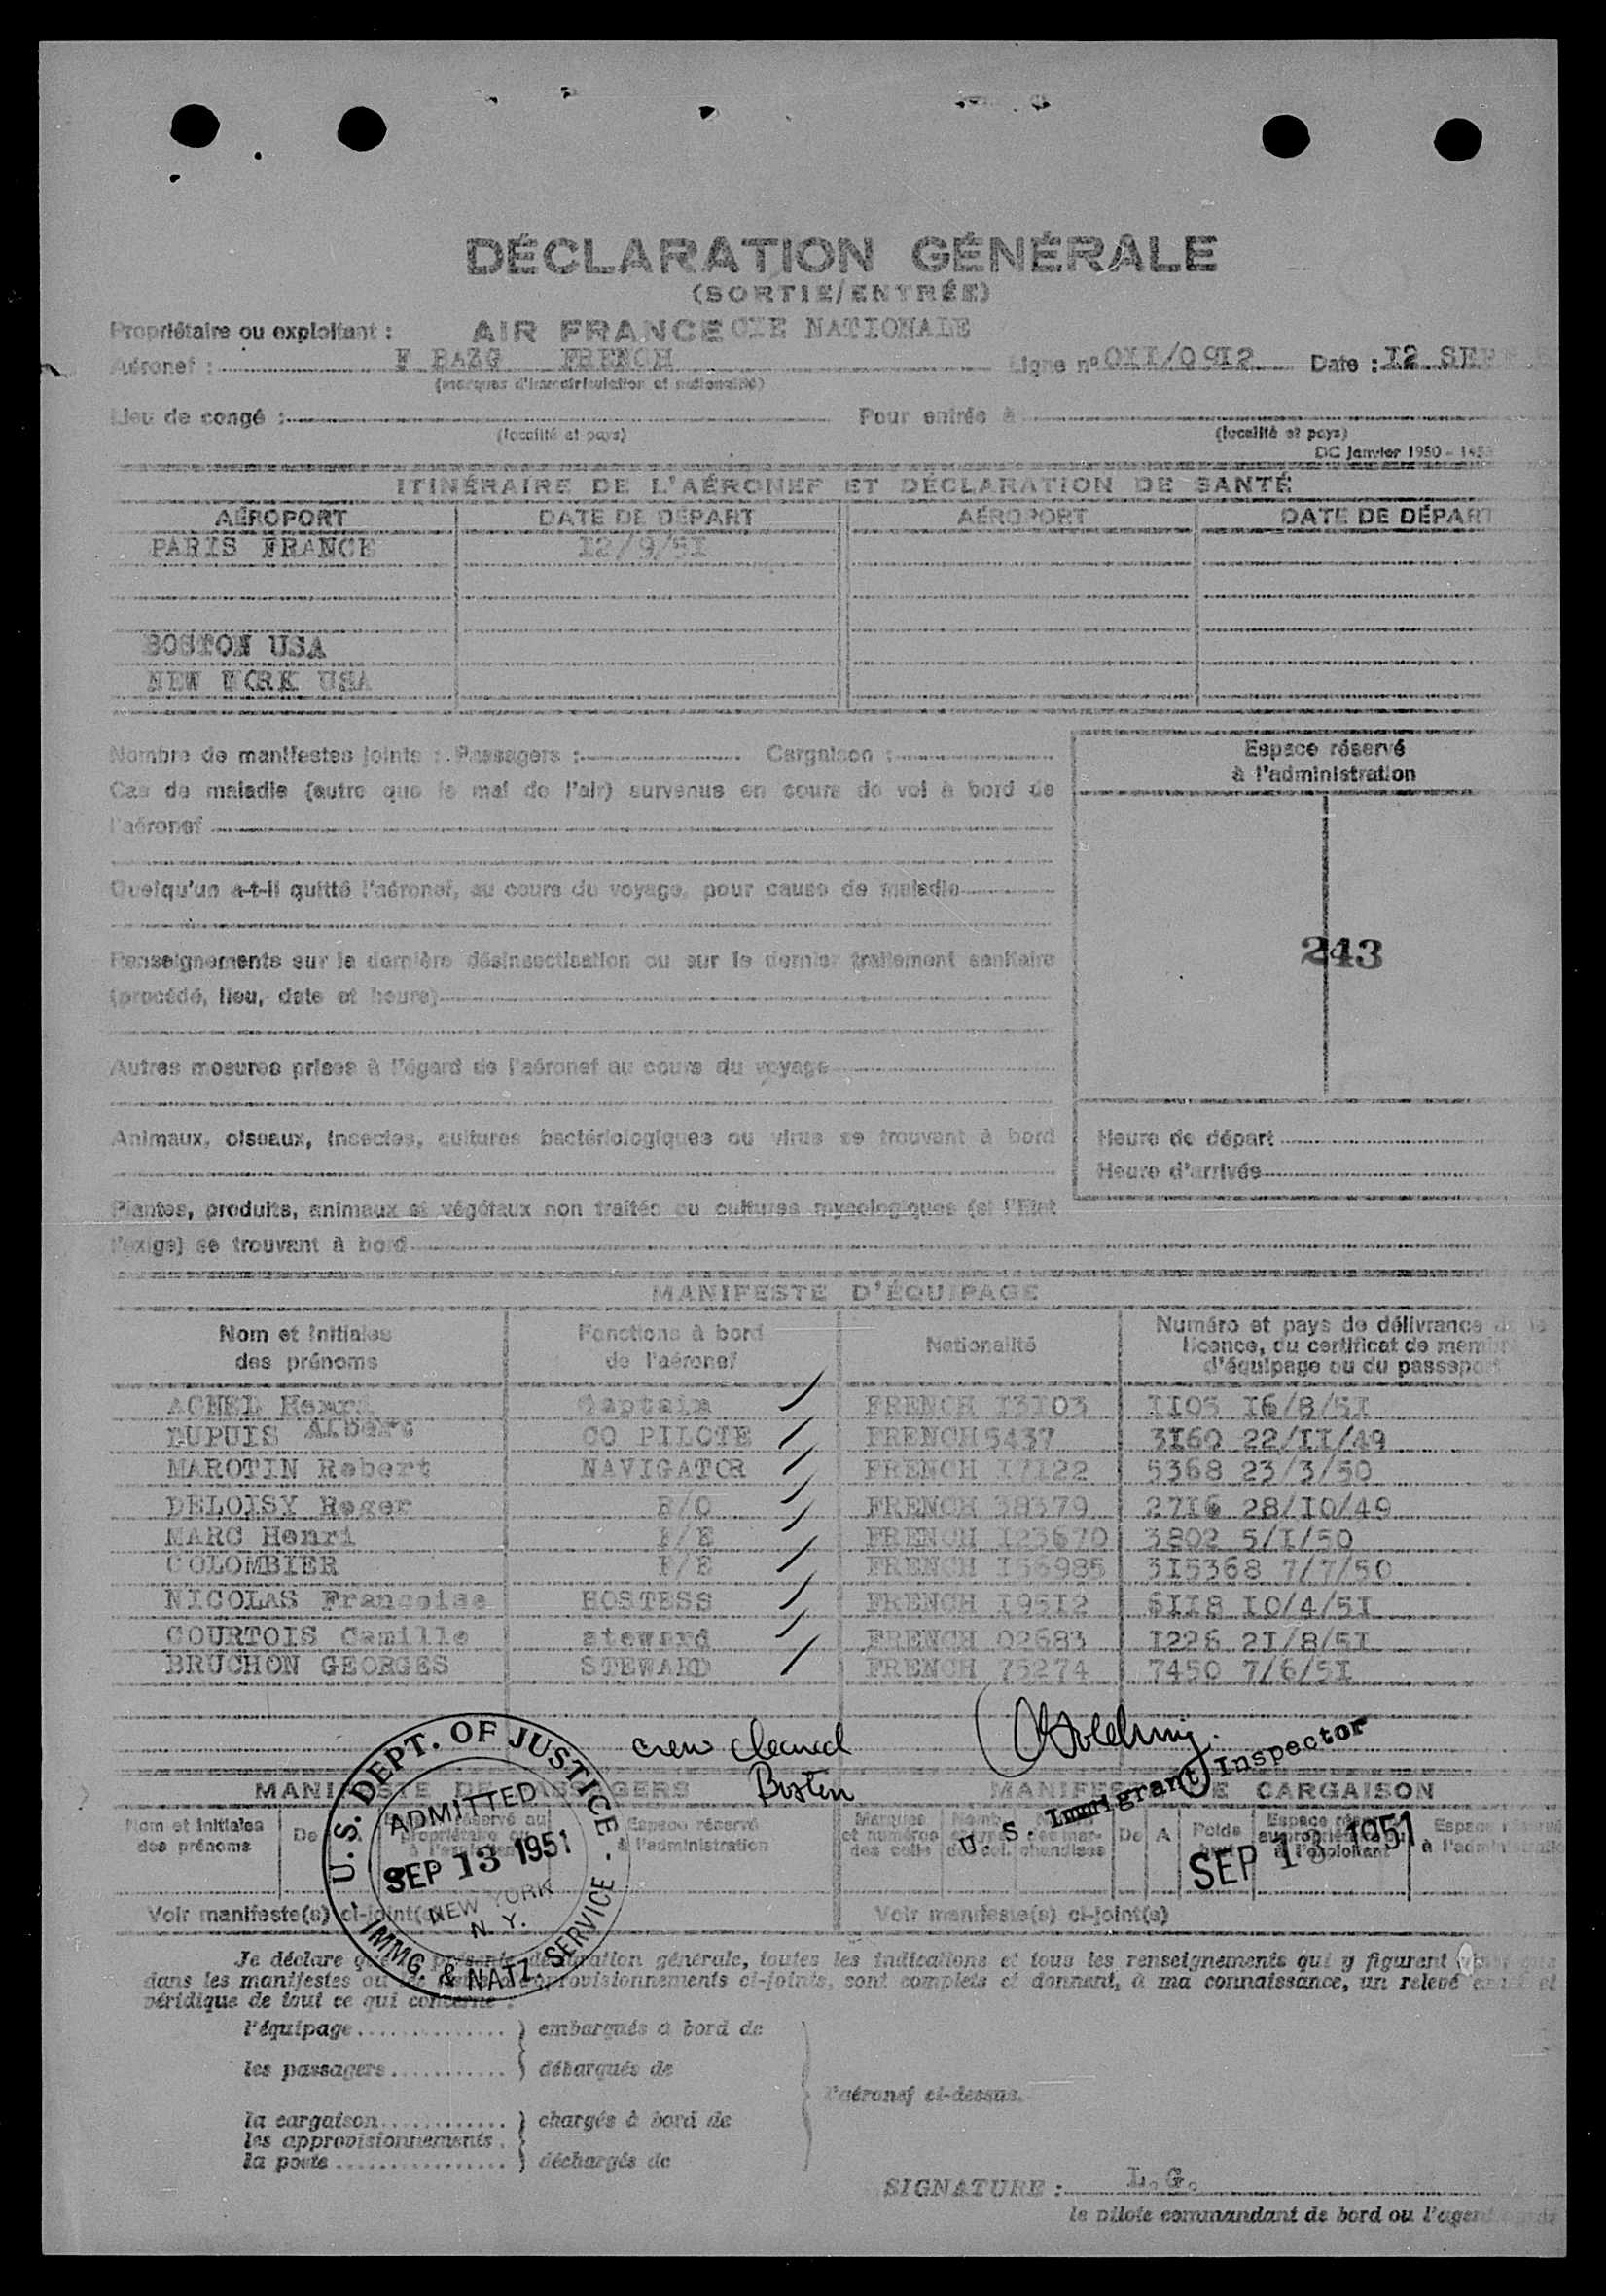 DÉCLARATION GÉNÉRALE
(SORTIE/ENTRÉE)
Propriétaire ou exploitant : AIR FRANCE CIE NATIONALE
Aéronef : F BAZG FRENCH Ligne nº 0II/0912 Date : I2 SEP
(marques d'immatriculation et nationalité)
Lieu de congé : Pour entrée à
(localité et pays) (localité et pays)
DC Janvier 1950 -
ITINÉRAIRE DE L'AÉRONEF ET DÉCLARATION DE SANTÉ
AÉROPORT DATE DE DÉPART AÉROPORT DATE DE DÉPART
PARIS FRANCE I2/9/5I
BOSTON USA
NEW YORK USA
Nombre de manifestes joints : Passagers : Cargaison :
Espace réservé
à l'administration
Cas de maladie (autre que le mal de l'air) survenus en cours de vol à bord de
l'aéronef
Quelqu'un a-t-il quitté l'aéronef, au cours du voyage, pour cause de maladie
243
Renseignements sur la dernière désinsectisation ou sur le dernier traitement sanitaire
(procédé, lieu, date et heure)
Autres mesures prises à l'égard de l'aéronef au cours du voyage
Animaux, oiseaux, insectes, cultures bactériologiques ou virus se trouvant à bord
Heure de départ
Heure d'arrivée
Plantes, produits, animaux et végétaux non traités ou cultures mycologiques (si l'Etat
l'exige) se trouvant à bord
MANIFESTE D'ÉQUIPAGE
Nom et initiales
des prénoms
Fonctions à bord
de l'aéronef
Nationalité
Numéro et pays de délivrance de la
licence, du certificat de membre
d'équipage ou du passeport
ACHEL Henri Captain FRENCH I3I03 II03 I6/8/5I
DUPUIS Albert CO PILOTE FRENCH 5437 3I60 22/II/49
MAROTIN Robert NAVIGATOR FRENCH I7I22 5368 23/3/50
DELOISY Roger R/O FRENCH 38379 27I6 28/I0/49
MARC Henri F/E FRENCH I23670 3802 5/I/50
COLOMBIER F/E FRENCH I36985 3I5368 7/7/50
NICOLAS Francoise HOSTESS FRENCH I95I2 6II8 I0/4/5I
COURTOIS Camille steward FRENCH 02683 I226 2I/8/5I
BRUCHON GEORGES STEWARD FRENCH 75274 7450 7/6/5I
crew cleared
Boston
U. S. Immigrant Inspector
SEP 13 1951
U.S. DEPT. OF JUSTICE - IMMG. & NATZ. SERVICE -
ADMITTED
SEP 13 1951
NEW YORK
N. Y.
MANIFESTE DE PASSAGERS MANIFESTE DE CARGAISON
Nom et initiales
des prénoms
De A
Espace réservé
à l'administration
Marques
et numéros
des colis
De A Poids
Voir manifeste(s) ci-joint(s) Voir manifeste(s) ci-joint(s)
Je déclare que la présente déclaration générale, toutes les indications et tous les renseignements qui y figurent
dans les manifestes ou approvisionnements ci-joints, sont complets et donnent, à ma connaissance, un relevé exact et
véridique de tout ce qui concerne :
l'équipage embarqués à bord de
les passagers débarqués de
l'aéronef ci-dessus.
la cargaison chargés à bord de
les approvisionnements
la poste déchargés de
SIGNATURE : L.G.
le pilote commandant de bord ou l'agent